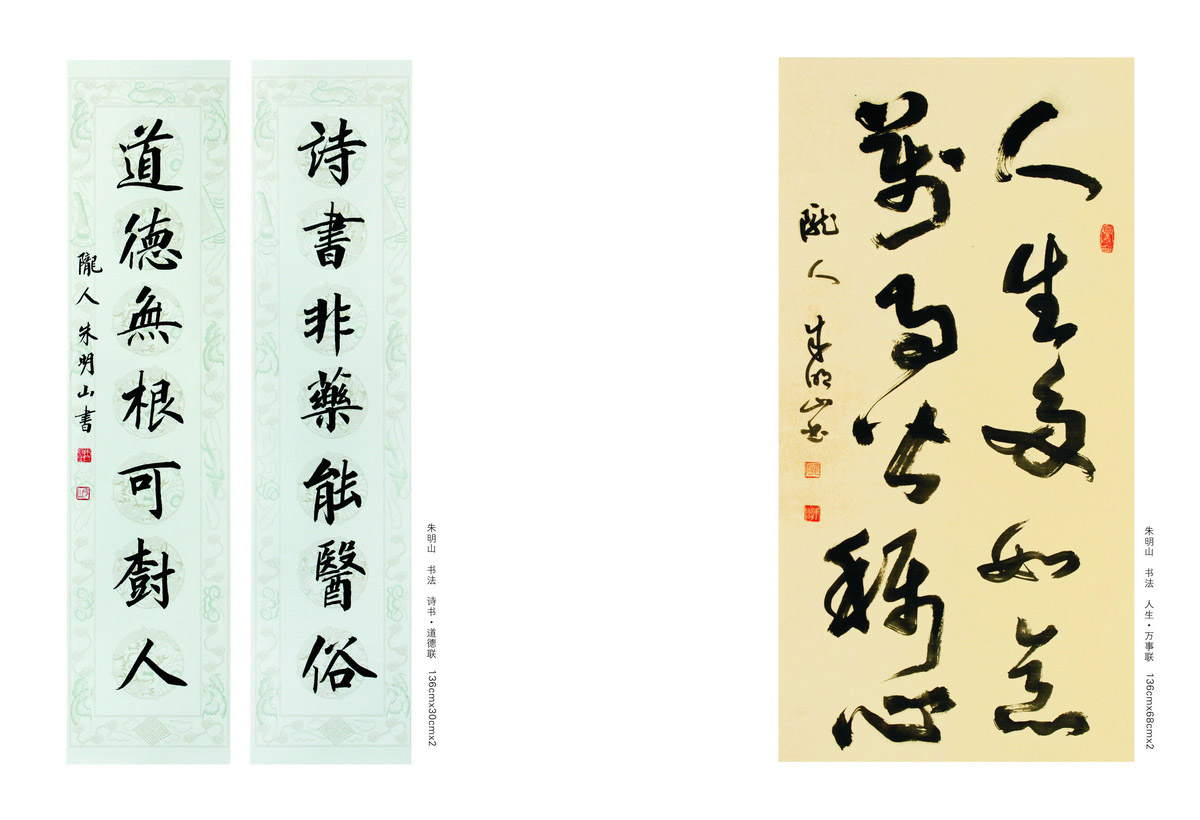 詩書非藥能醫俗
道德無根可樹人
隴人朱明山書
朱明山 书法 诗书·道德联 136cmx30cmx2
人生多如意
萬事皆稱心
隴人 朱明山书
朱明山 书法 人生·万事联 136cmx68cmx2